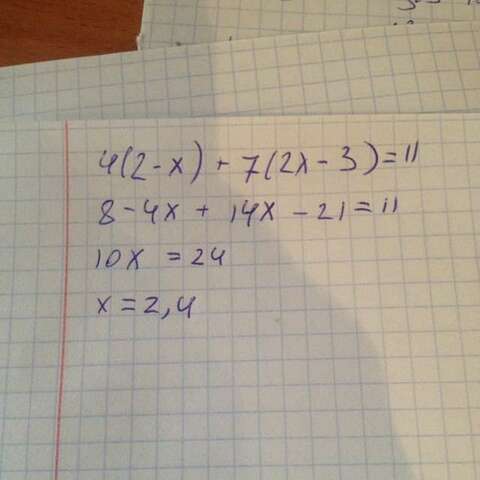 4(2-x) + 7(2x-3)=11
8-4x + 14x -21=11
10x =24
x=2,4